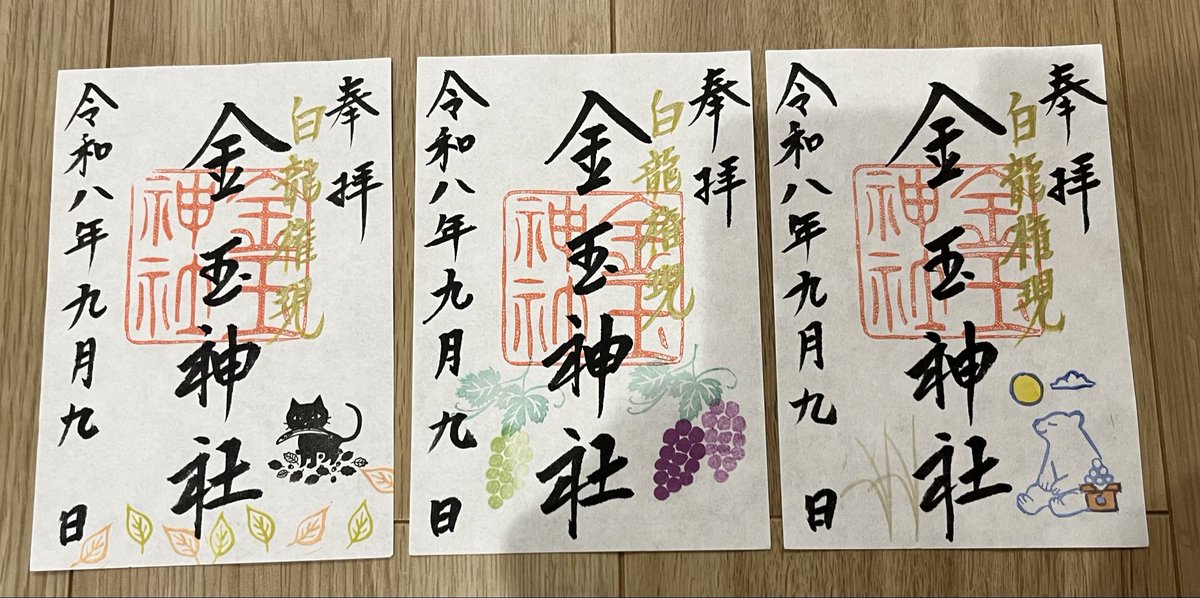 奉拝
白龍権現
金玉神社
金玉神社
令和八年九月九日
奉拝
白龍権現
金玉神社
金玉神社
令和八年九月九日
奉拝
白龍権現
金玉神社
金玉神社
令和八年九月九日